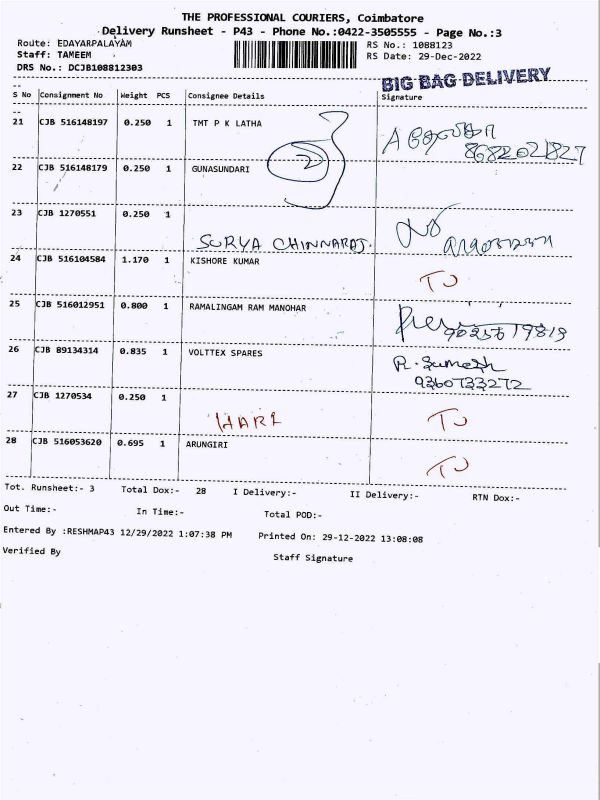 THE PROFESSIONAL COURIERS, Coimbatore
Delivery Runsheet - P43 - Phone No.:0422-3505555 - Page No.:3
Route: EDAYARPALAYAM RS No.: 1088123
Staff: TAMEEM RS Date: 29-Dec-2022
DRS No.: DCJB108812303
BIG BAG DELIVERY
S No Consignment No Weight PCS Consignee Details Signature
21 CJB 516148197 0.250 1 TMT P K LATHA
8682021827
22 CJB 516148179 0.250 1 GUNASUNDARI
2
23 CJB 1270551 0.250 1
SURYA CHINNARAJ.
24 CJB 516104584 1.170 1 KISHORE KUMAR
25 CJB 516012951 0.800 1 RAMALINGAM RAM MANOHAR
26 CJB 89134314 0.835 1 VOLTTEX SPARES R. Sumesh
9360733272
27 CJB 1270534 0.250 1
HARI
28 CJB 516053620 0.695 1 ARUNGIRI
Tot. Runsheet:- 3 Total Dox:- 28 I Delivery:- II Delivery:- RTN Dox:-
Out Time:- In Time:- Total POD:-
Entered By :RESHMAP43 12/29/2022 1:07:38 PM Printed On: 29-12-2022 13:08:08
Verified By Staff Signature